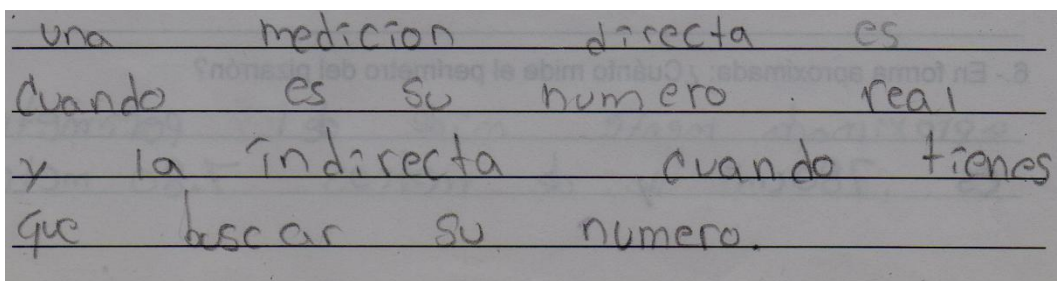 una medicion directa es
cuando es su numero real
y la indirecta cuando tienes
que buscar su numero.